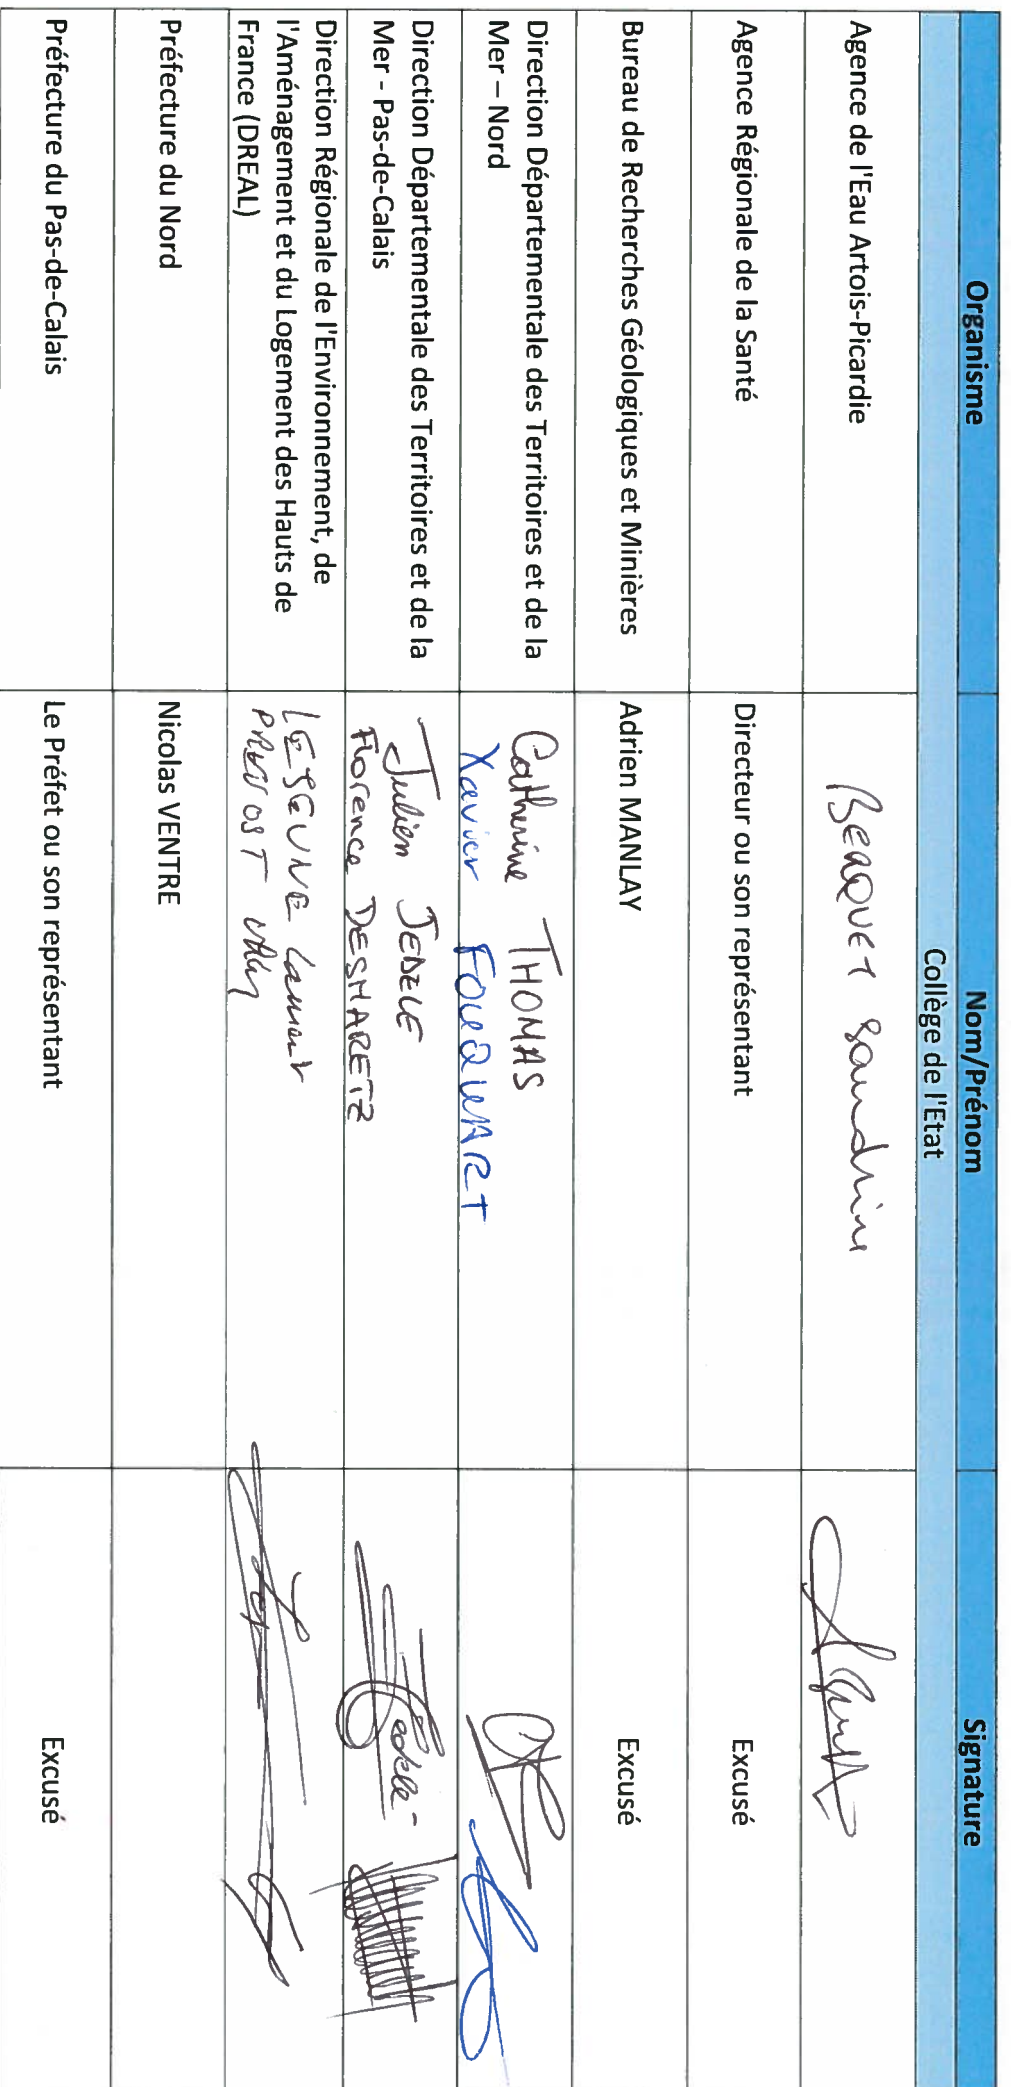 Organisme Nom/Prénom Signature
Collège de l'Etat
Agence de l'Eau Artois-Picardie BEAQUET Sandrine
Agence Régionale de la Santé Directeur ou son représentant Excusé
Bureau de Recherches Géologiques et Minières Adrien MANLAY Excusé
Direction Départementale des Territoires et de la Catherine THOMAS
Mer – Nord Xavier FOUQUART
Direction Départementale des Territoires et de la Julien JEDELE Jedele
Mer - Pas-de-Calais Florence DESMARETZ
Direction Régionale de l'Environnement, de
l'Aménagement et du Logement des Hauts de LESEUNE Laurent
France (DREAL) PREVOST
Préfecture du Nord Nicolas VENTRE
Préfecture du Pas-de-Calais Le Préfet ou son représentant Excusé